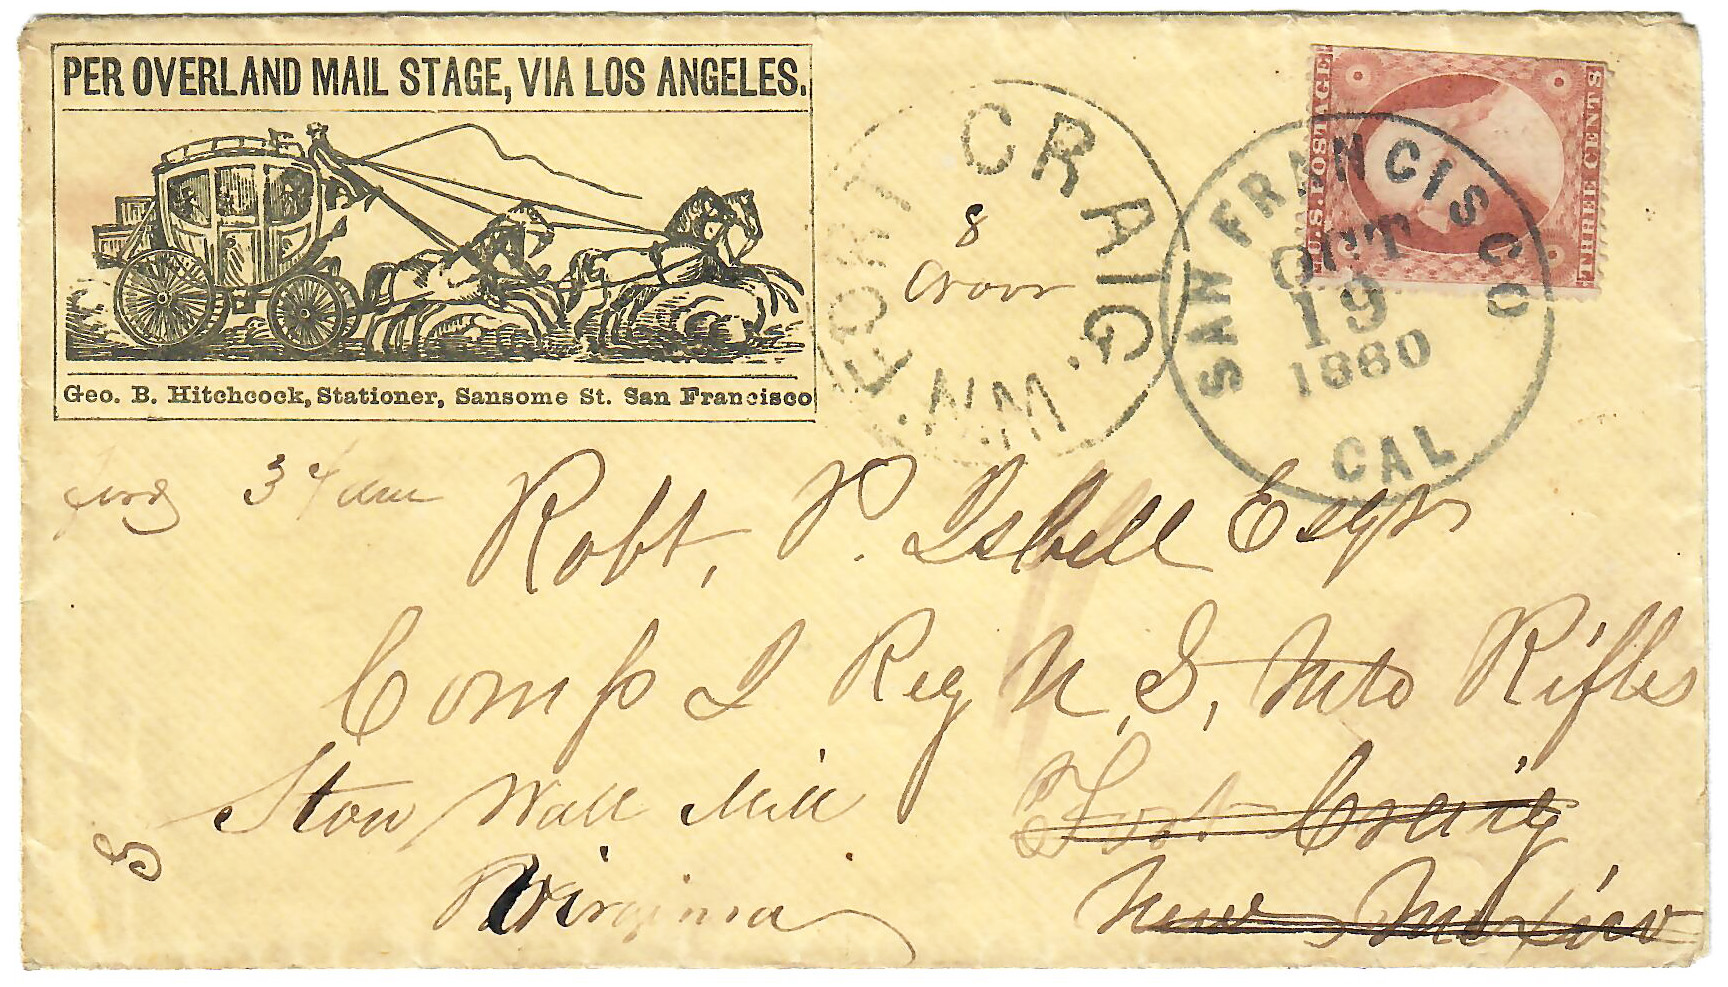 PER OVERLAND MAIL STAGE, VIA LOS ANGELES.
Geo. B. Hitchcock, Stationer, Sansome St. San Francisco
FORT CRAIG. N.M.
8
U.S. POSTAGE
THREE CENTS
SAN FRANCISCO
OCT
19
1860
CAL
3
Robt, P. Isbell Esqr
Comp I Reg U, S, Mtd Rifles
Fort Craig
New Mexico
Stow Wall Mill
Virginia